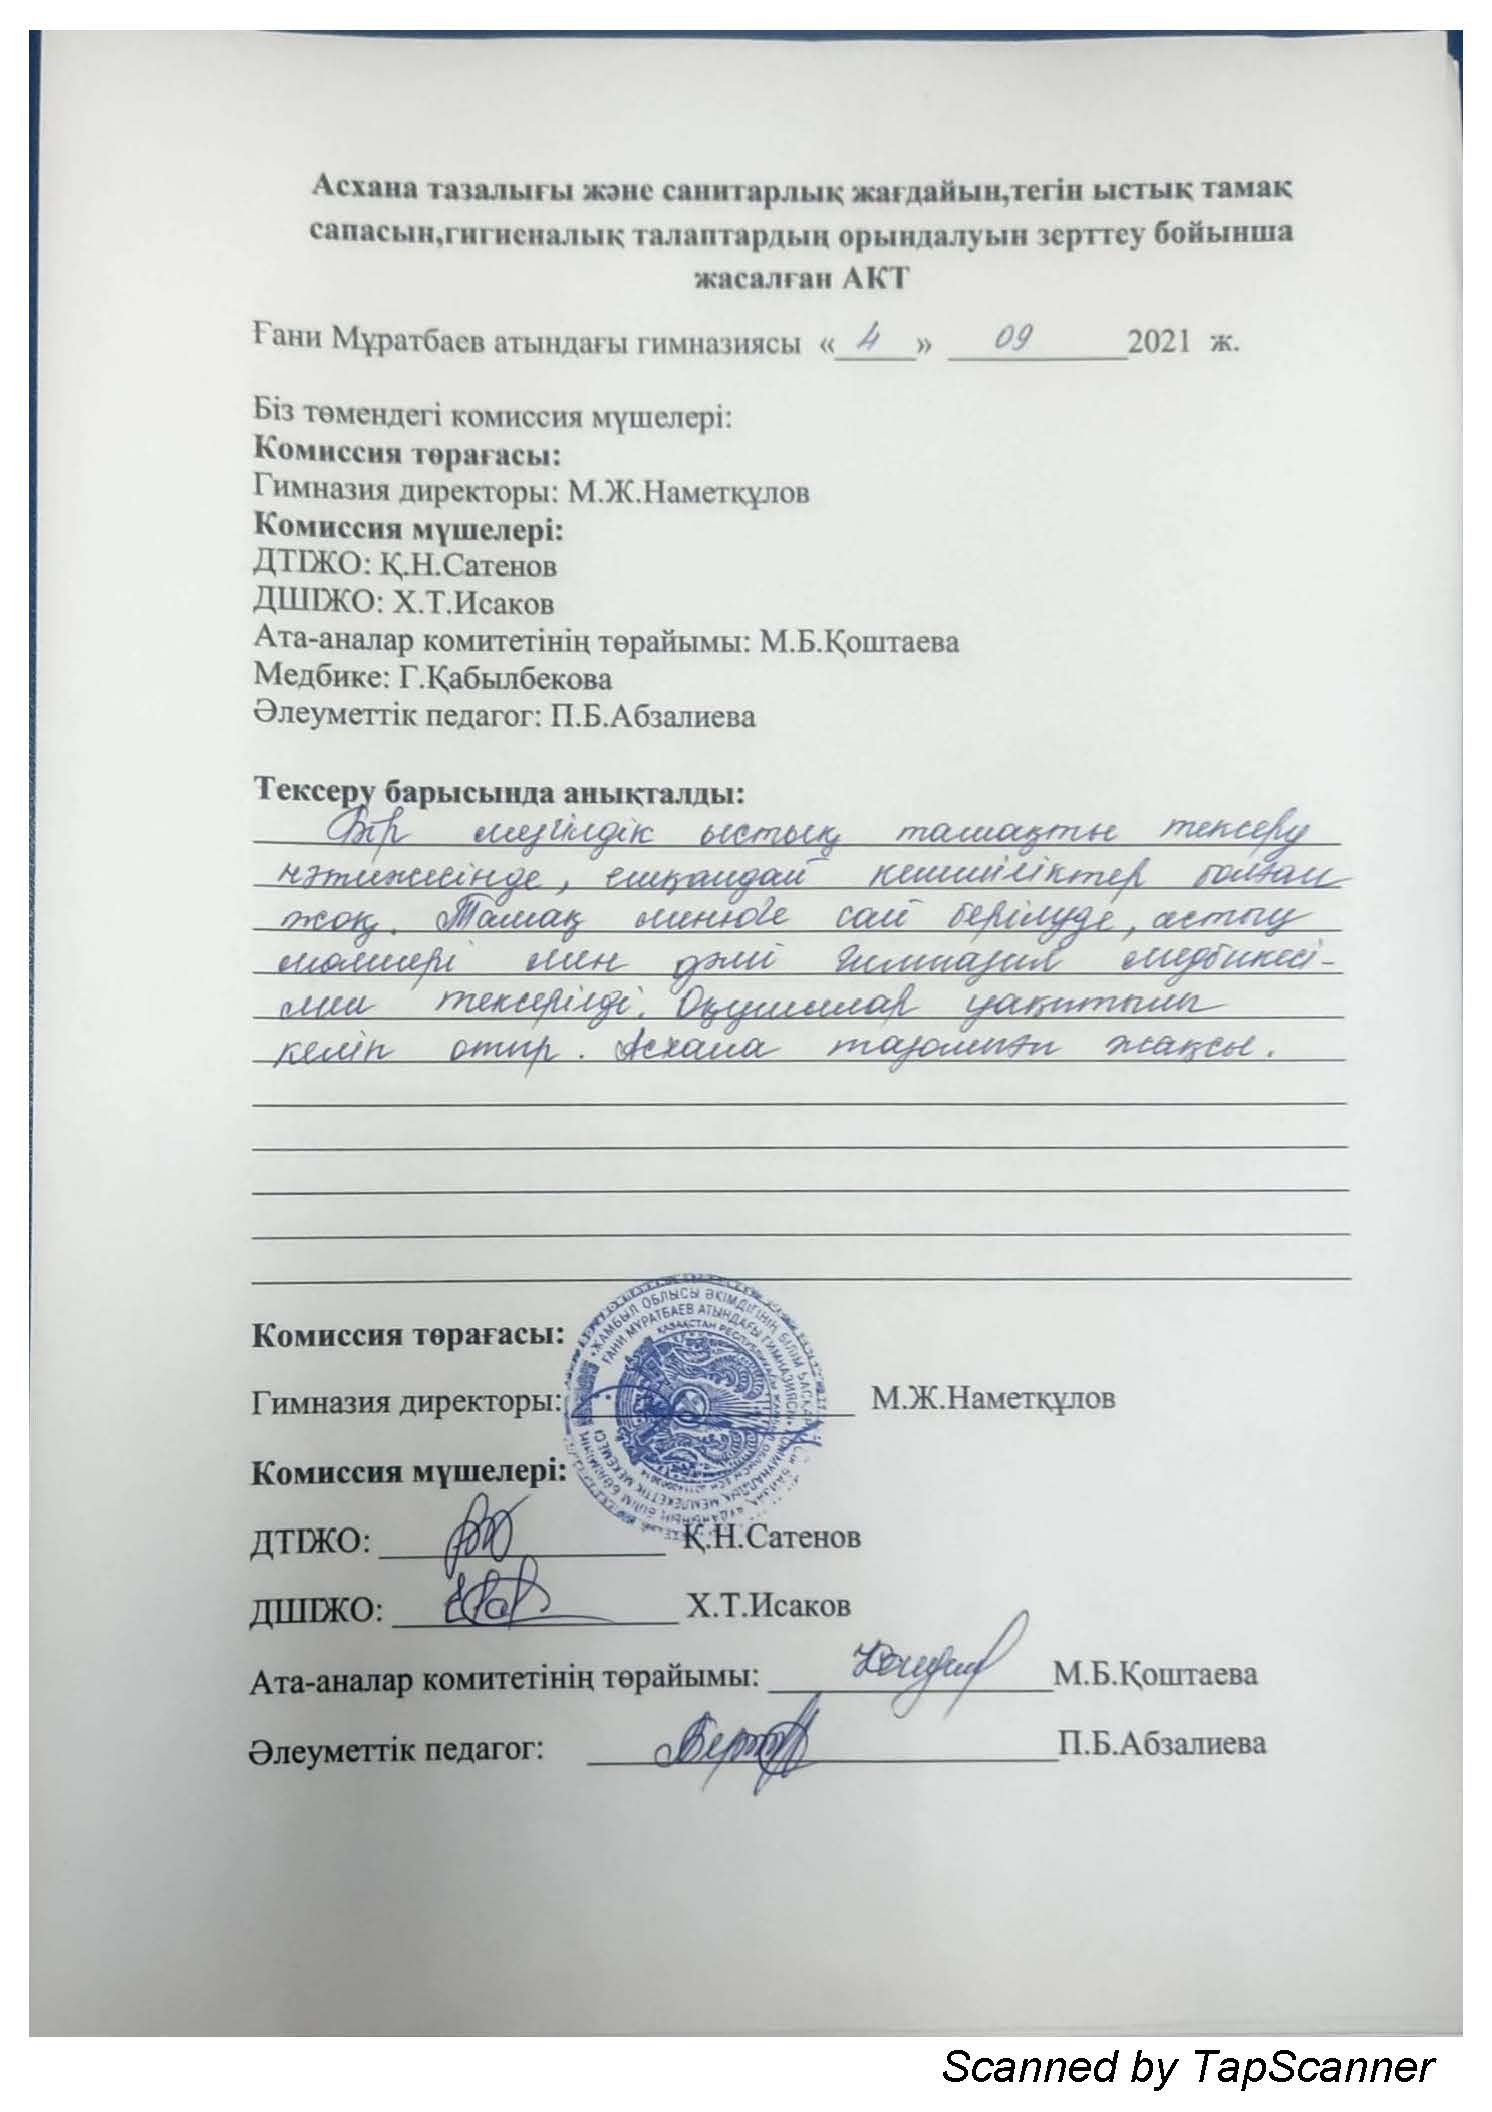 Асхана тазалығы және санитарлық жағдайын,тегін ыстық тамақ
сапасын,гигиеналық талаптардың орындалуын зерттеу бойынша
жасалған АКТ
Ғани Мұратбаев атындағы гимназиясы «4» 09 2021 ж.
Біз төмендегі комиссия мүшелері:
Комиссия төрағасы:
Гимназия директоры: М.Ж.Наметқұлов
Комиссия мүшелері:
ДТІЖО: Қ.Н.Сатенов
ДШІЖО: Х.Т.Исаков
Ата-аналар комитетінің төрайымы: М.Б.Қоштаева
Медбике: Г.Қабылбекова
Әлеуметтік педагог: П.Б.Абзалиева
Тексеру барысында анықталды:
Бір мезгілдік ыстық тамақты тексеру
нәтижесінде, ешқандай кемшіліктер болған
жоқ. Тамақ менюге сай берілуде, астың
мөлшері мен дәмі гимназия медбикесі-
мен тексерілді. Оқушылар уақытылы
келіп отыр. Асхана тазалығы жақсы.
Комиссия төрағасы:
Гимназия директоры: М.Ж.Наметқұлов
Комиссия мүшелері:
ДТІЖО: Қ.Н.Сатенов
ДШІЖО: Х.Т.Исаков
Ата-аналар комитетінің төрайымы: М.Б.Қоштаева
Әлеуметтік педагог: П.Б.Абзалиева
ЖАМБЫЛ ОБЛЫСЫ ӘКІМДІГІНІҢ БІЛІМ
ҒАНИ МҰРАТБАЕВ АТЫНДАҒЫ ГИМНАЗИЯСЫ
ҚАЗАҚСТАН РЕСПУБЛИКАСЫ
Scanned by TapScanner